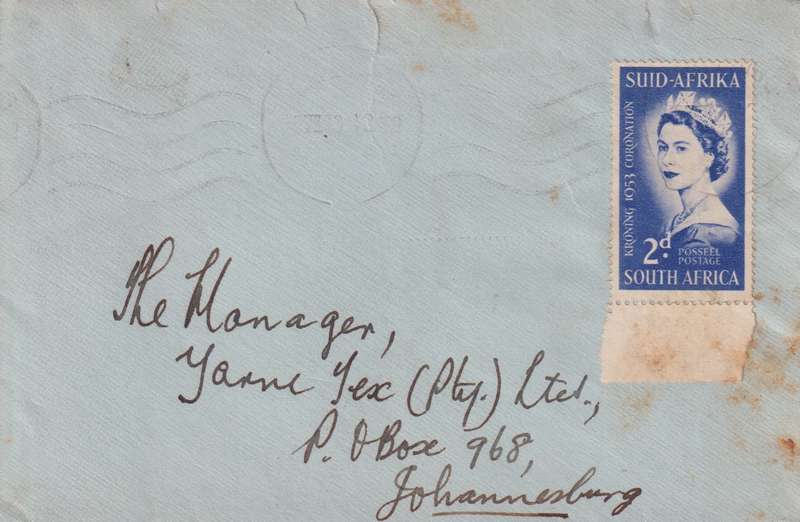 SUID-AFRIKA
KRONING 1953 CORONATION
2d.
POSSEËL
POSTAGE
SOUTH AFRICA
The Manager,
Yarne Tex (Pty.) Ltd.,
P. O Box 968,
Johannesburg